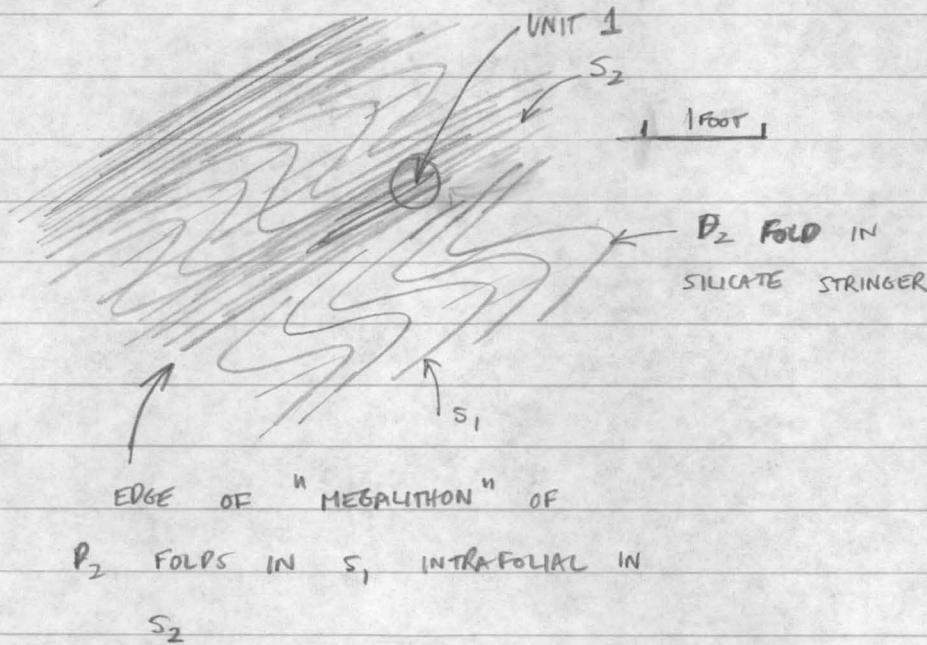 UNIT 1
S₂
1 FOOT
D₂ FOLD IN
SILICATE STRINGER
S₁
EDGE OF "MEGALITHON" OF
D₂ FOLDS IN S₁ INTRAFOLIAL IN
S₂